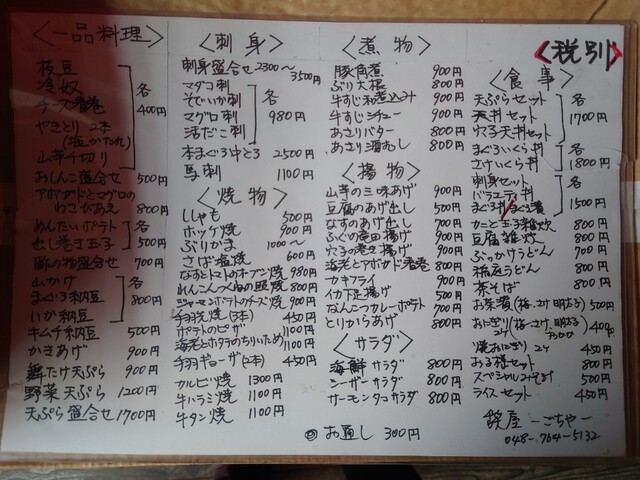 〈一品料理〉
枝豆
冷奴
チーズ春巻
やきとり 2本
(塩かたれ)
山芋千切り
各
400円
おしんこ盛合せ 500円
アボガドとマグロの
わさびあえ 800円
めんたいポテト
だし巻き玉子
各
500円
豚の物盛合せ 700円
山かけ
まぐろ納豆
いか納豆
各
800円
キムチ納豆 500円
かきあげ 900円
舞たけ天ぷら 900円
野菜天ぷら 1200円
天ぷら盛合せ 1700円
〈刺身〉
刺身盛合せ 2300〜
3500円
マダコ刺
そでいか刺
マグロ刺
活だこ刺
各
980円
本まぐろ中とろ 2500円
馬刺 1100円
〈焼物〉
ししゃも 500円
ホッケ焼 900円
ぶりかま 1000〜
さば塩焼 600円
なすとトマトのオーブン焼 980円
れんこんつくねの照焼 800円
ジャーマンポテトのチーズ焼 900円
手羽先焼(3本) 450円
ポテトのピザ 1100円
海老とホタテのちりいため 1100円
手羽ギョーザ(2本) 450円
カルビ焼 1300円
牛ハラミ焼 1100円
牛タン焼 1100円
〈煮物〉
豚角煮 900円
ぶり大根 800円
牛すじ和煮込み 900円
牛すじシチュー 900円
あさりバター 800円
あさり酒むし 800円
〈揚物〉
山芋の三味あげ 900円
豆腐のあげ出し 500円
なすのあげ出し 700円
ふぐの唐田揚げ 900円
穴子の春揚げ 900円
海老とアボガド春巻 800円
カキフライ 900円
イカ下足揚げ 500円
なんこつカレーポテト 700円
とりからあげ 800円
〈サラダ〉
海鮮サラダ 800円
シーザーサラダ 800円
サーモンタコサラダ 800円
◎ お通し 300円
〈税別〉
〈食事〉
天ぷらセット
天丼セット
穴子天丼セット
各
1700円
まぐろいくら丼
さけいくら丼
各
1800円
刺身セット
バラエティ丼
各
1500円
かにと玉子雑炊 800円
豆腐雑炊 800円
ぶっかけうどん 800円
稲庭うどん 800円
茶そば 800円
お茶漬(梅、さけ、明太子) 500円
おにぎり(梅・さけ、明太子
2ケ おかか) 400円
焼おにぎり 2ケ 450円
お子様セット 800円
スペシャルみそ汁 500円
ライスセット 450円
鎮屋 -ごちや-
048-764-5132